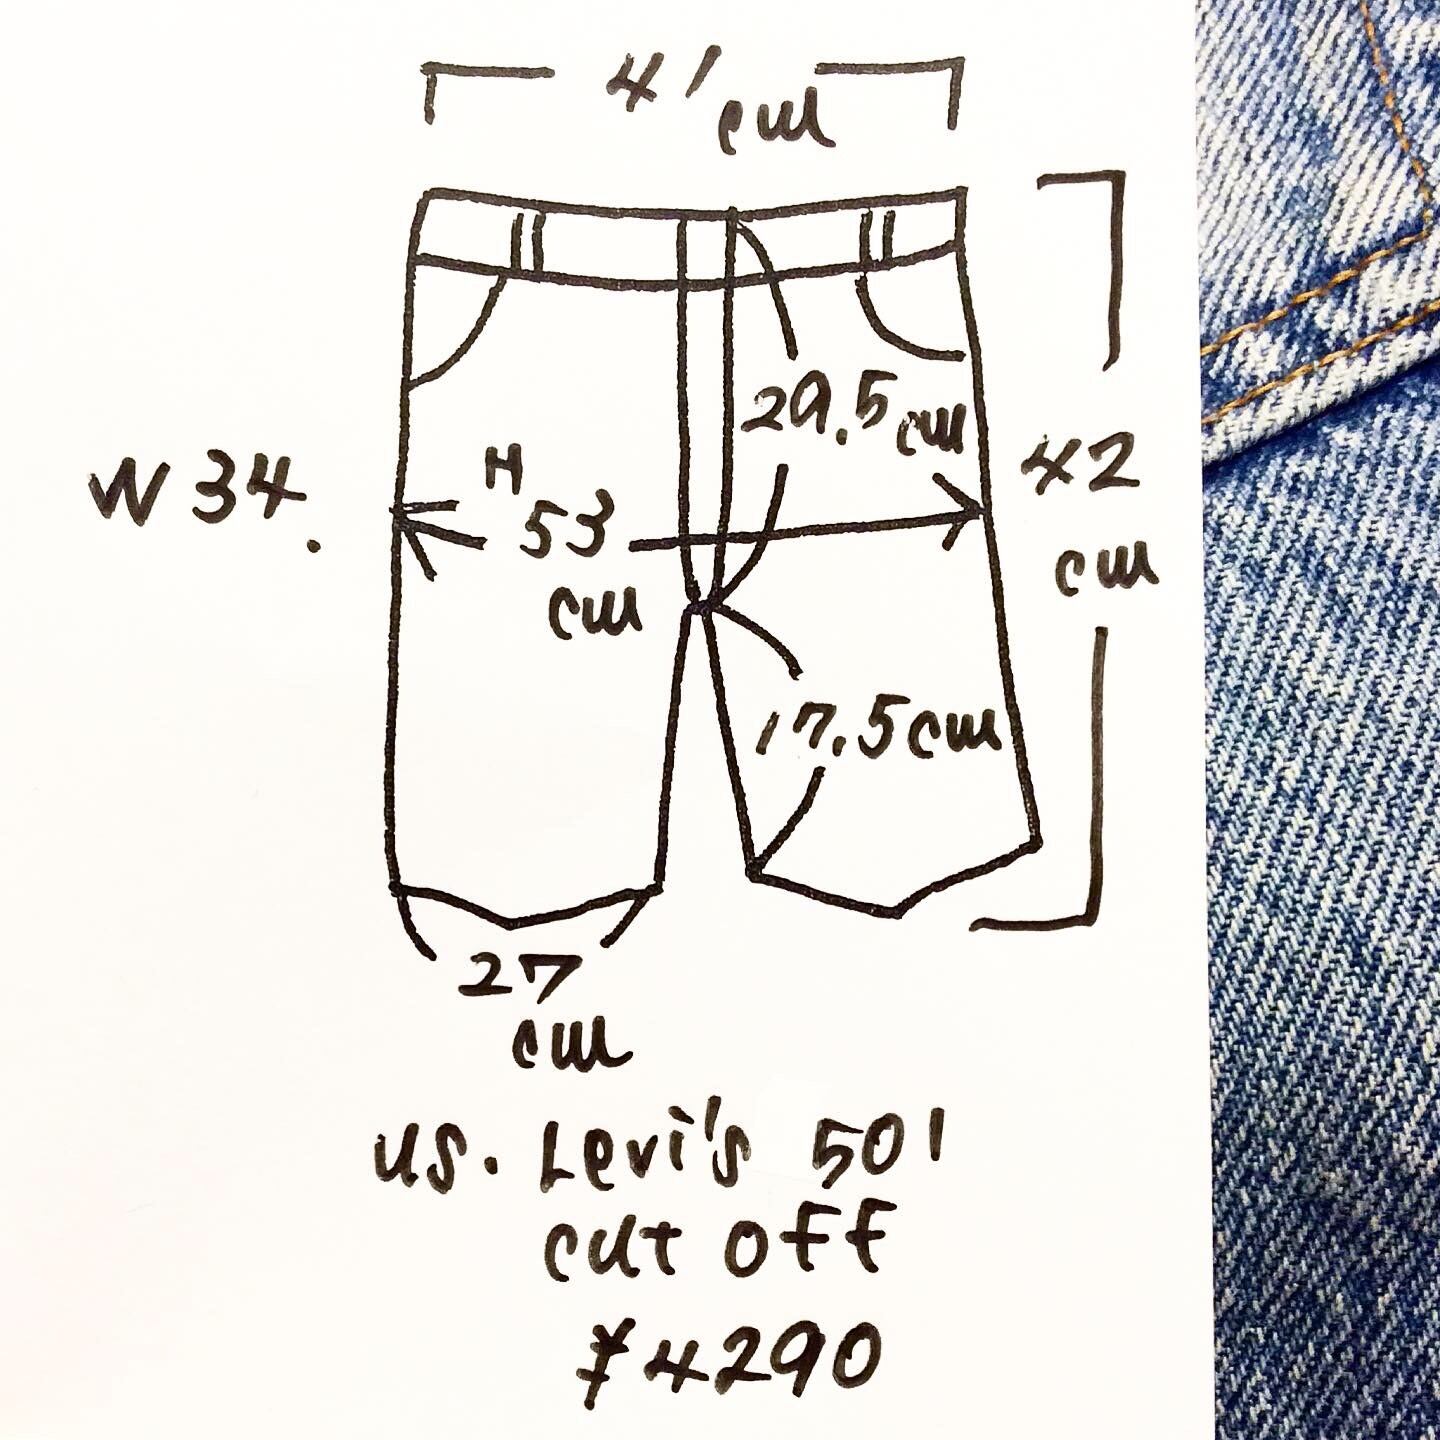 41 cm
29.5 cm
W 34.
H 53 cm
42 cm
17.5 cm
27 cm
U.S. Levi's 501
cut off
¥4290